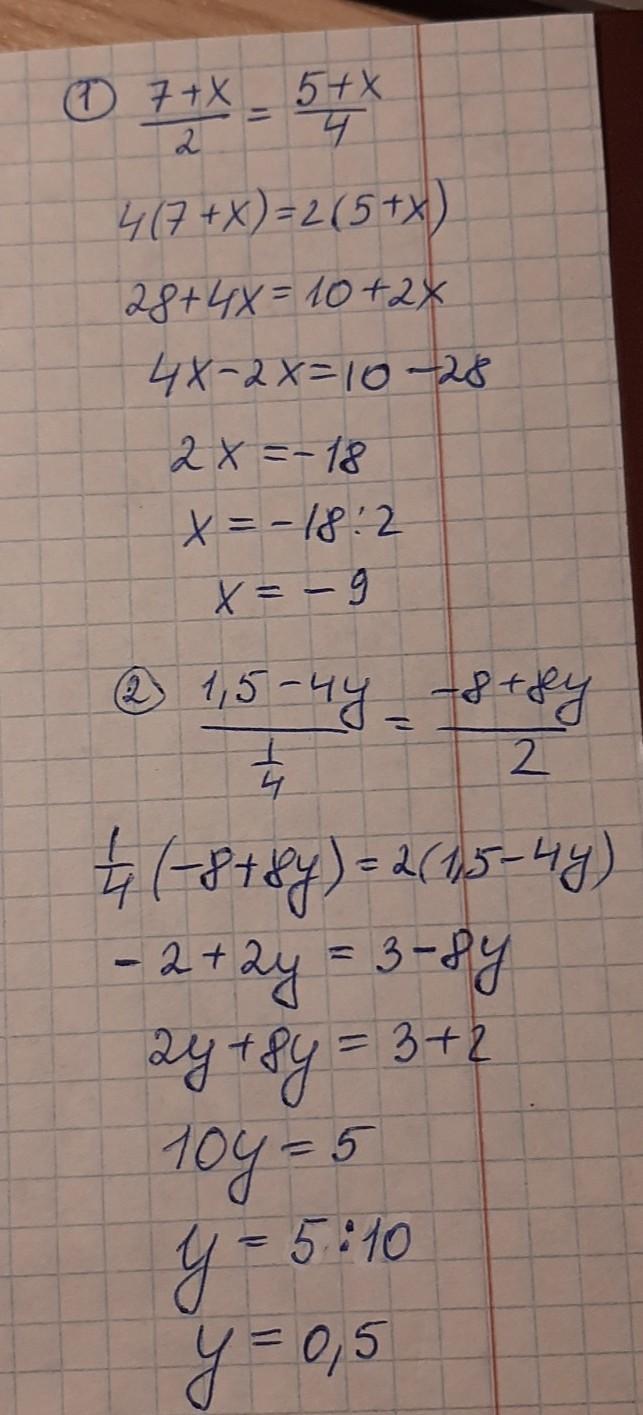 ① 7+x/2 = 5+x/4
4(7+x)=2(5+x)
28+4x=10+2x
4x-2x=10-28
2x=-18
x=-18:2
x=-9
② 1,5-4y/(1/4) = -8+8y/2
1/4(-8+8y)=2(1,5-4y)
-2+2y=3-8y
2y+8y=3+2
10y=5
y=5:10
y=0,5